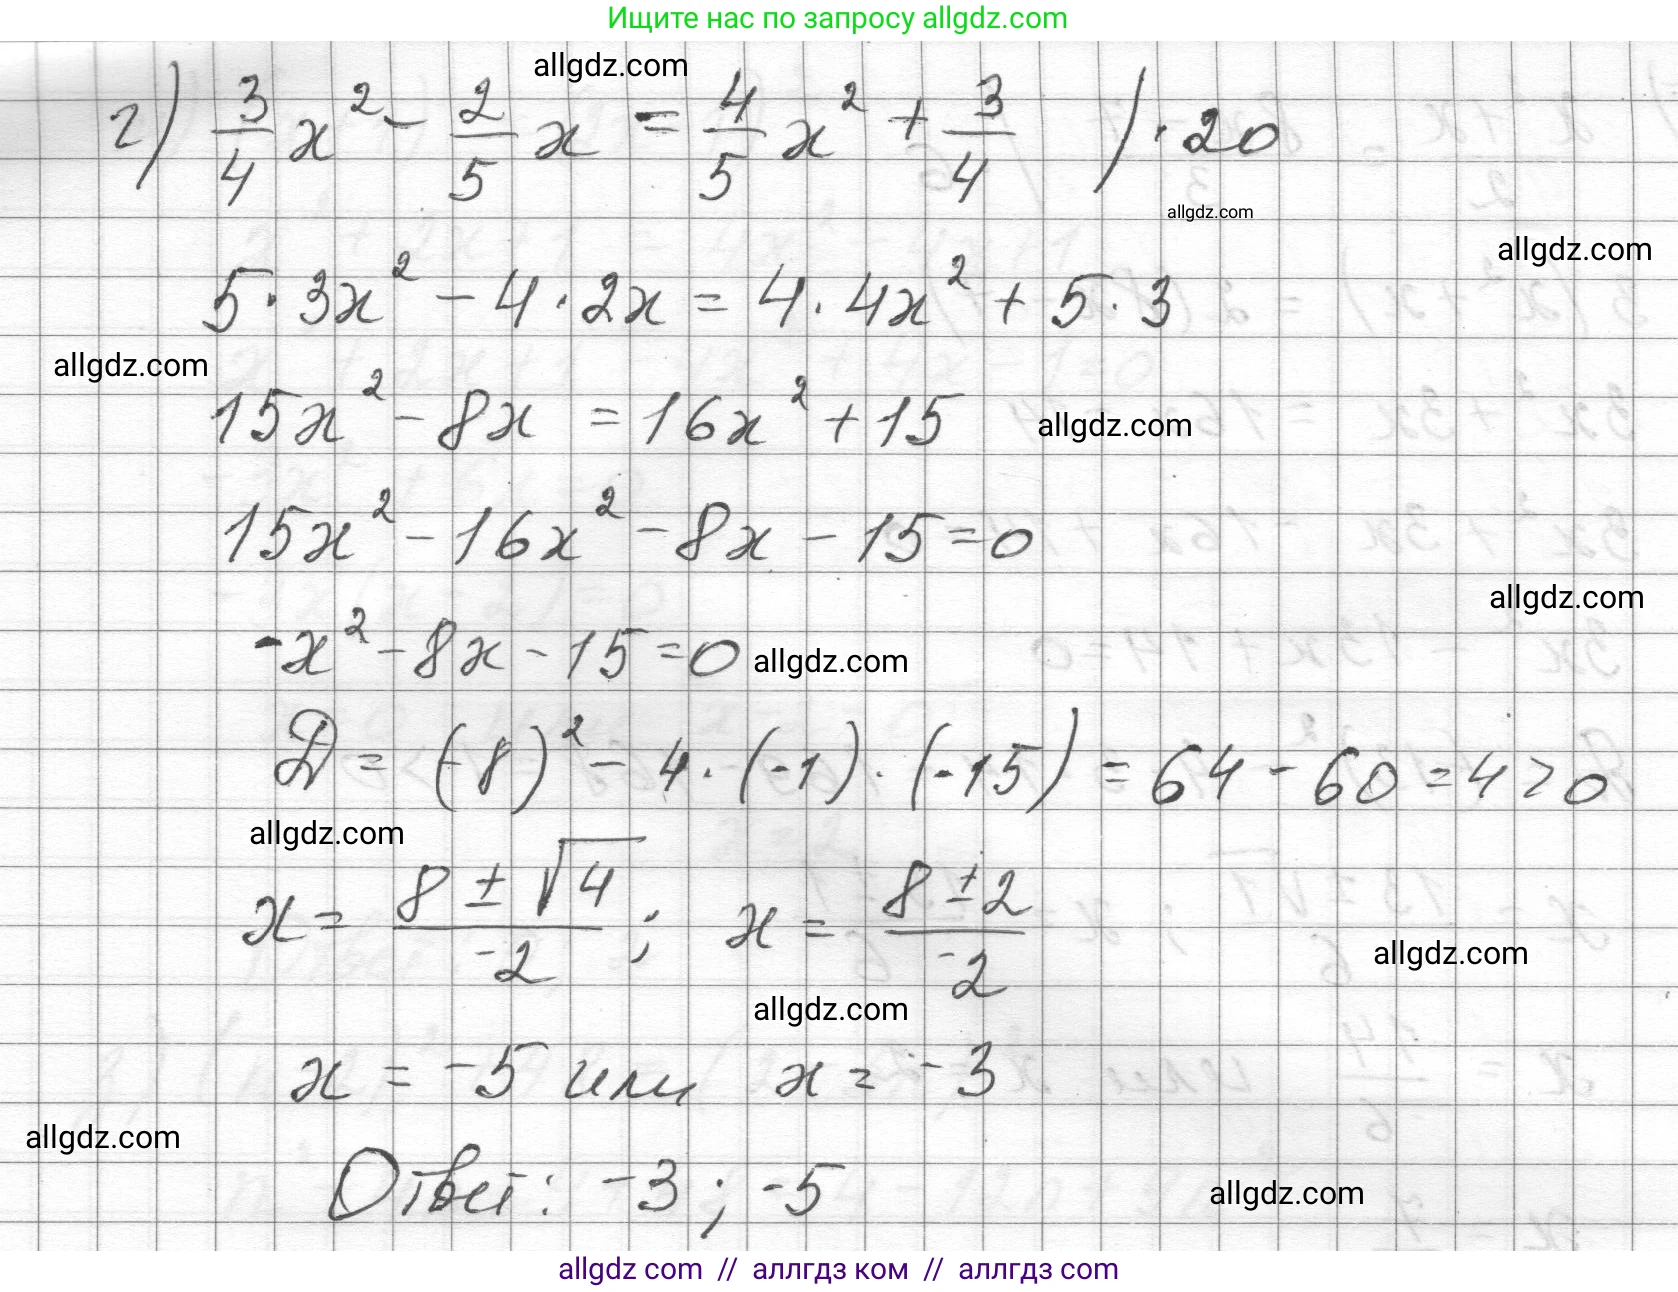 Ищите нас по запросу allgdz.com
allgdz.com
г) 3/4 x² - 2/5 x = 4/5 x² + 3/4 ) · 20
allgdz.com
allgdz.com
5 · 3x² - 4 · 2x = 4 · 4x² + 5 · 3
allgdz.com
15x² - 8x = 16x² + 15
allgdz.com
15x² - 16x² - 8x - 15 = 0
allgdz.com
-x² - 8x - 15 = 0
allgdz.com
Д = (-8)² - 4 · (-1) · (-15) = 64 - 60 = 4 > 0
allgdz.com
x = (8 ± √4)/(-2) ; x = (8 ± 2)/(-2)
allgdz.com
allgdz.com
x = -5 или x = -3
allgdz.com
Ответ: -3 ; -5
allgdz.com
allgdz com // аллгдз ком // аллгдз com